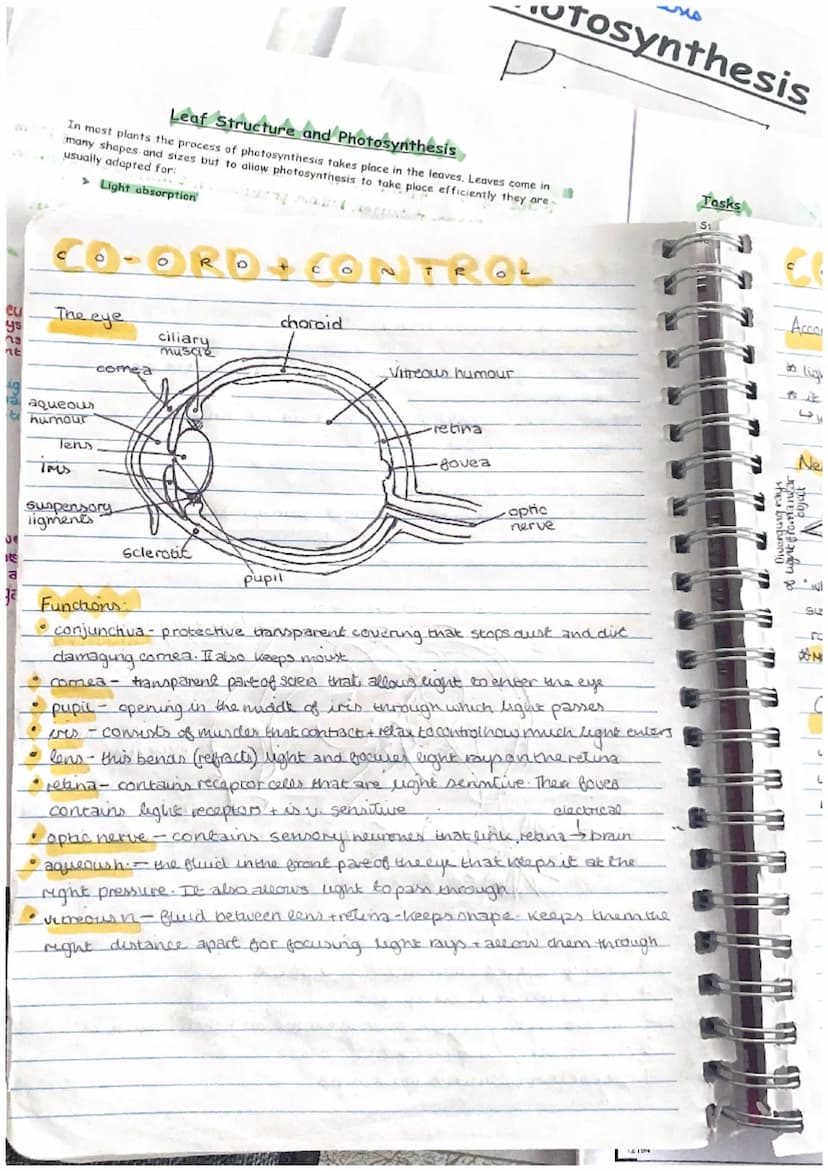 otosynthesis
Leaf Structure and Photosynthesis
In most plants the process of photosynthesis takes place in the leaves. Leaves come in
many shapes and sizes but to allow photosynthesis to take place efficiently they are
usually adapted for:
Light absorption
Tasks
CO-ORD + CONTROL
The eye
choroid
ciliary
muscle
cornea
vitreous humour
aqueous
humour
retina
lens
fovea
iris
suspensory
ligments
optic
nerve
sclerotic
pupil
Functions:
conjunctiva - protective transparent covering that stops dust and dirt
damaging cornea. It also keeps moist
cornea - transparent part of sclera that allows light to enter the eye
pupil - opening in the middle of iris through which light passes
iris - consists of muscles that contract + relax to control how much light enters
lens - this bends (refracts) light and focuses light rays on the retina
retina - contains receptor cells that are light sensitive. The fovea
contains light receptors + is v. sensitive
electrical
optic nerve - contains sensory neurones that link retina → brain
aqueous h. - the fluid in the front part of the eye that keeps it at the
right pressure. It also allows light to pass through
vitreous h - fluid between lens + retina - keeps shape. keeps them the
right distance apart for focusing light rays + allow them through
Diverging rays
of light from a near
object